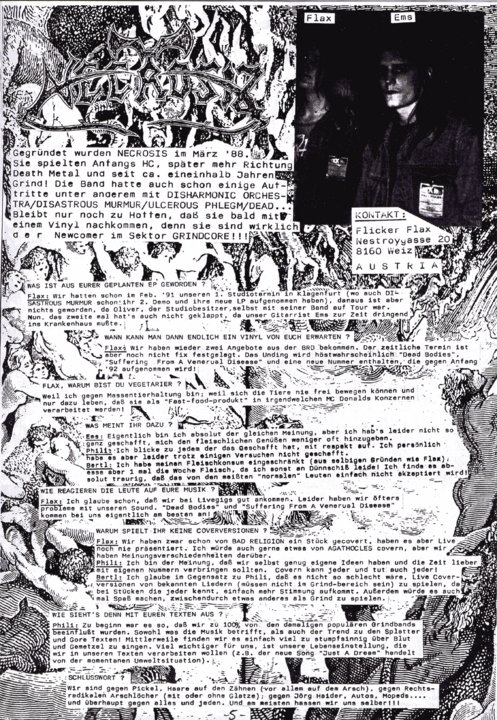 Flax Ems
NECROSIS
Gegründet wurden NECROSIS im März '88.
Sie spielten Anfangs HC, später mehr Richtung
Death Metal und seit ca. eineinhalb Jahren
Grind! Die Band hatte auch schon einige Auf-
tritte unter anderem mit DISHARMONIC ORCHES-
TRA/DISASTROUS MURMUR/ULCEROUS PHLEGM/DEAD...
Bleibt nur noch zu Hoffen, daß sie bald mit
einem Vinyl nachkommen, denn sie sind wirklich
d e r Newcomer im Sektor GRINDCORE!!!
KONTAKT:
Flicker Flax
Nestroygasse 20
8160 Weiz
A U S T R I A
WAS IST AUS EURER GEPLANTEN EP GEWORDEN ?
Flax: Wir hatten schon im Feb. '91 unseren 1. Studiotermin in Klagenfurt (wo auch DI-
SASTROUS MURMUR schon ihr 2. Demo und ihre neue LP aufgenommen haben), daraus ist aber
nichts geworden, da Oliver, der Studiobesitzer, selbst mit seiner Band auf Tour war.
Nun, das zweite mal hat's auch nicht geklappt, da unser Gitarrist Ems zur Zeit dringend
ins Krankenhaus mußte.
WANN KANN MAN DANN ENDLICH EIN VINYL VON EUCH ERWARTEN ?
Flax: Wir haben wieder zwei Angebote aus der BRD bekommen. Der zeitliche Termin ist
aber noch nicht fix festgelegt. Das Unding wird höstwahrscheinlich "Dead Bodies",
"Suffering From A Venerual Disease" und eine neue Nummer enthalten, die gegen Anfang
'92 aufgenommen wird!
FLAX, WARUM BIST DU VEGETARIER ?
Weil ich gegen Massentierhaltung bin; weil sich die Tiere nie frei bewegen können und
nur dazu leben, daß sie als "Fast-food-produkt" in irgendwelchen MC Donalds Konzernen
verarbeitet werden!
WAS MEINT IHR DAZU ?
Ems: Eigentlich bin ich absolut der gleichen Meinung, aber ich hab's leider nicht so
ganz geschafft, mich den fleischlichen Genüßen weniger oft hinzugeben.
Phili: Ich blicke zu jedem der das Geschafft hat, mit respekt auf. Ich persönlich
habe es aber leider trotz einigen Versuchen nicht geschafft.
Bartl: Ich habe meinen Fleischkonsum eingeschränkt (aus selbigen Gründen wie Flax).
esse aber 1 mal die Woche Fleisch, da ich sonst an Dünnschiß leide! Ich finde es ab-
solut traurig, daß das von den meißten "normalen" Leuten einfach nicht akzeptiert wird!
WIE REAGIEREN DIE LEUTE AUF EURE MUSIK ?
Flax: Ich glaube schon, daß wir bei Livegigs gut ankommen. Leider haben wir öfters
probleme mit unseren Sound. "Dead Bodies" und "Suffering From A Venerual Disease"
kommen bei uns eigentlich am besten an!
WARUM SPIELT IHR KEINE COVERVERSIONEN ?
Flax: Wir haben zwar schon von BAD RELIGION ein Stück gecovert, haben es aber Live
noch nie präsentiert. Ich würde auch gerne etwas von AGATHOCLES covern, aber wir
haben Meinungsverschiedenheiten darüber.
Phili: Ich bin der Meinung, daß wir selbst genug eigene Ideen haben und die Zeit lieber
mit eigenen Nummern verbringen sollten. Covern kann jeder und tut auch jeder!
Bartl: Ich glaube im Gegensatz zu Phili, daß es nicht so schlecht wäre, Live Cover-
versionen von bekannten Liedern (müssen nicht im Grind-bereich sein) zu spielen, da
bei Stücken die jeder kennt, einfach mehr Stimmung aufkommt. Außerdem würde es auch
mal Spaß machen, zwischendurch etwas anderes als Grind zu spielen.
WIE SIEHT'S DENN MIT EUREN TEXTEN AUS ?
Phili: Zu beginn war es so, daß wir zu 100% von den damaligen populären Grindbands
beeinflußt wurden. Sowohl was die Musik betrifft, als auch der Trend zu den Splatter
und Gore Texten! Mittlerweile finden wir es einfach viel zu stumpfsinnig über Blut
und Gemetzel zu singen. Viel wichtiger für uns, ist unsere Lebenseinstellung, die
wir in unseren Texten verarbeiten wollen (z.B. der neue Song "Just A Dream" handelt
von der momentanen Umweltsituation).
SCHLUSSWORT ?
Wir sind gegen Pickel, Haare auf den Zähnen (vor allem auf dem Arsch), gegen Rechts-
radikalen Arschlöcher (mit oder ohne Glatze); gegen Jörg Haider, Autos, Mopeds....
und überhaupt gegen alles und jeden. Und am meisten hassen wir uns selber!!!
-5-